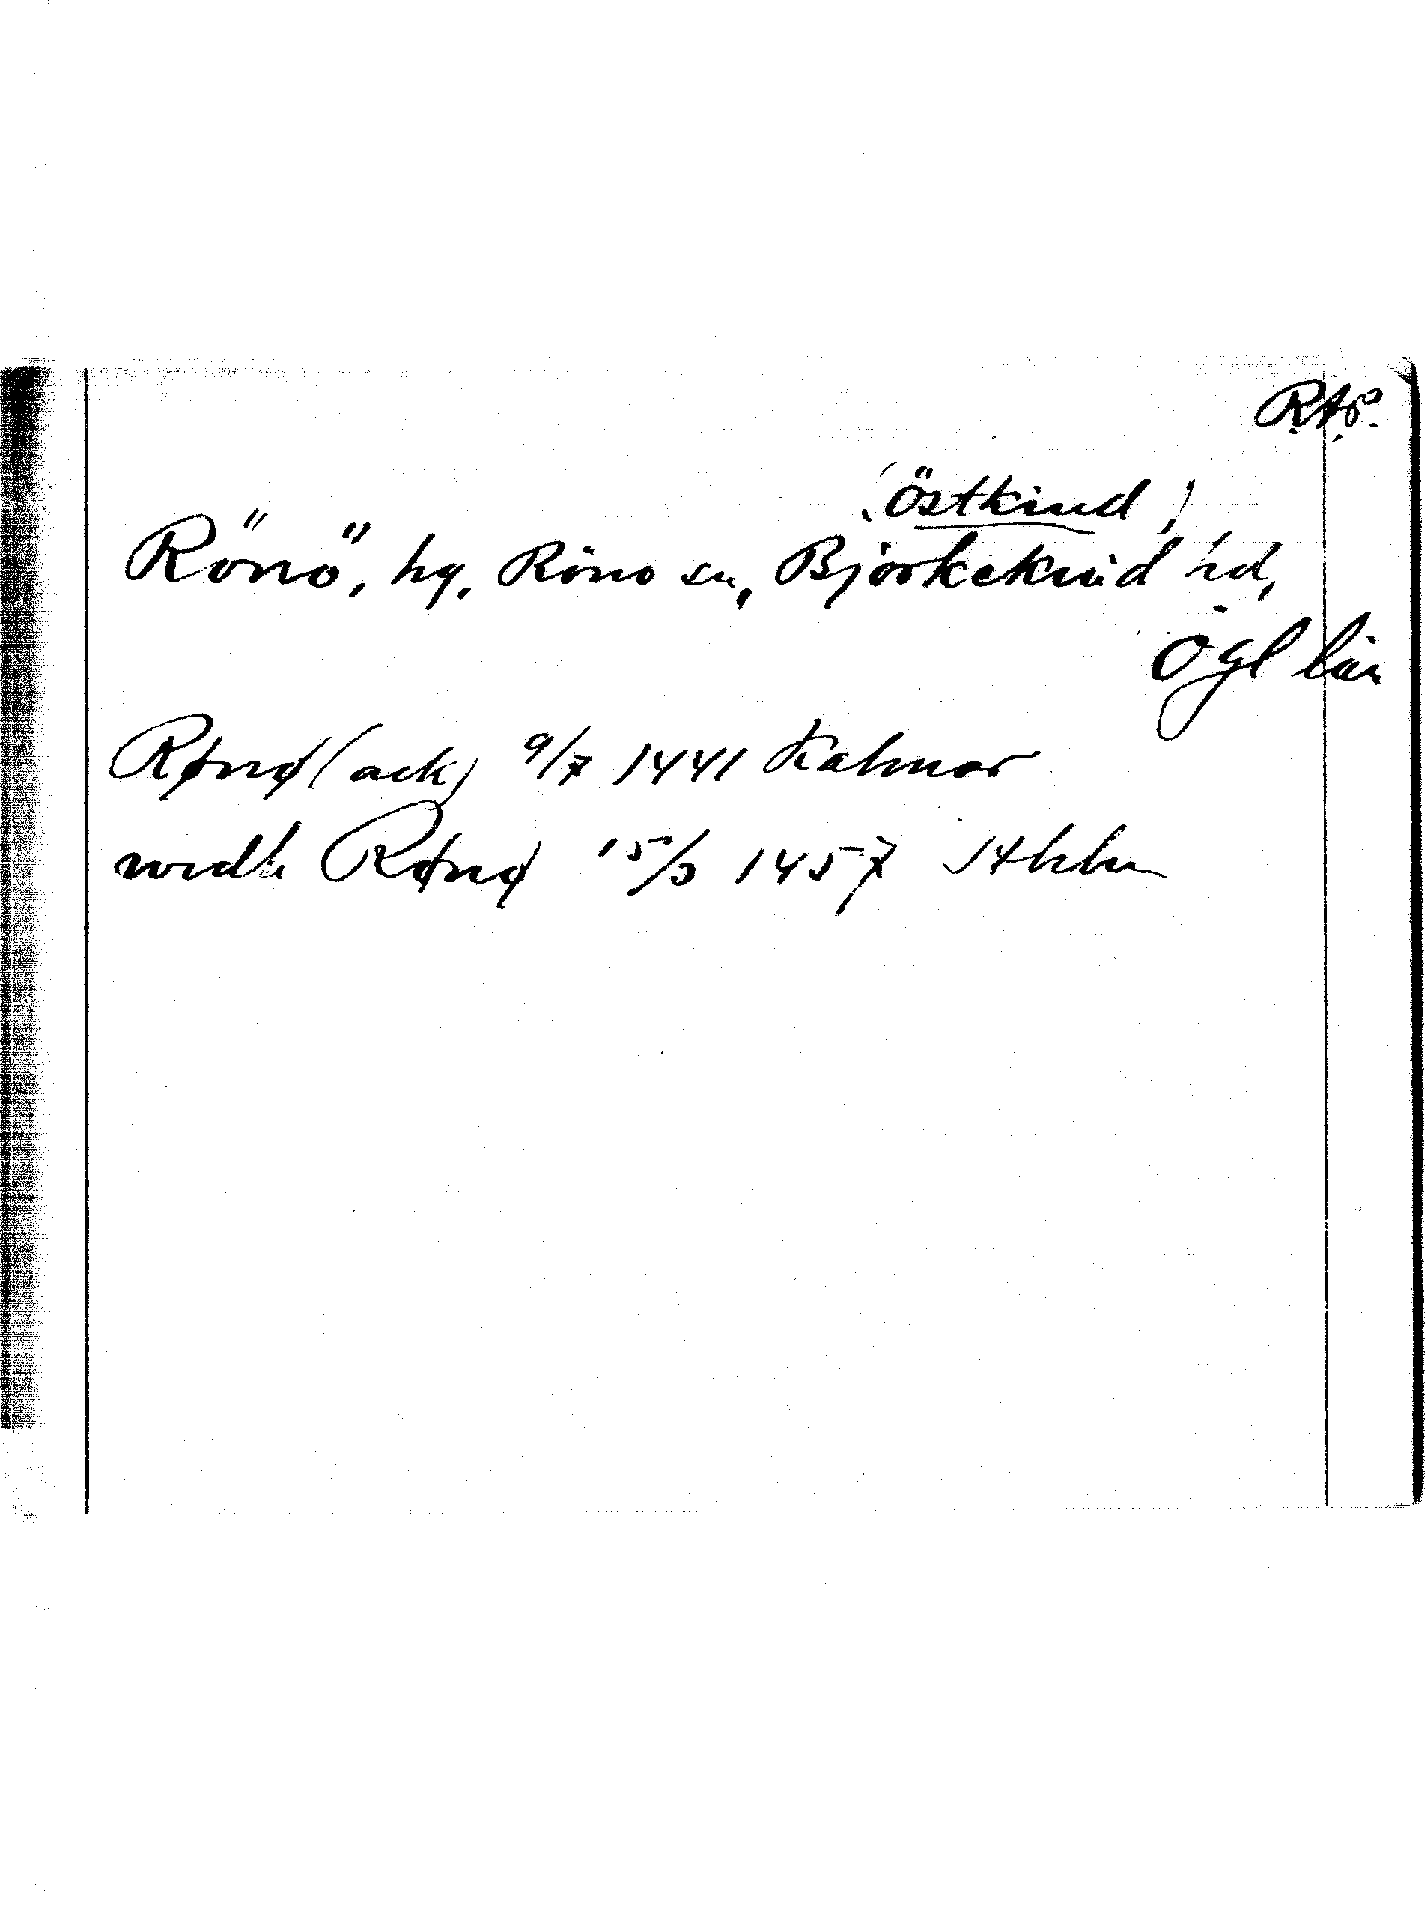 RAp.
(Östkind)
Rönö, hg, Rönö sn, Björkekind hd,
Ögl län
Rønø (ack) 9/7 1441 Kalmar
widh Rønø 15/3 1457 Sthlm